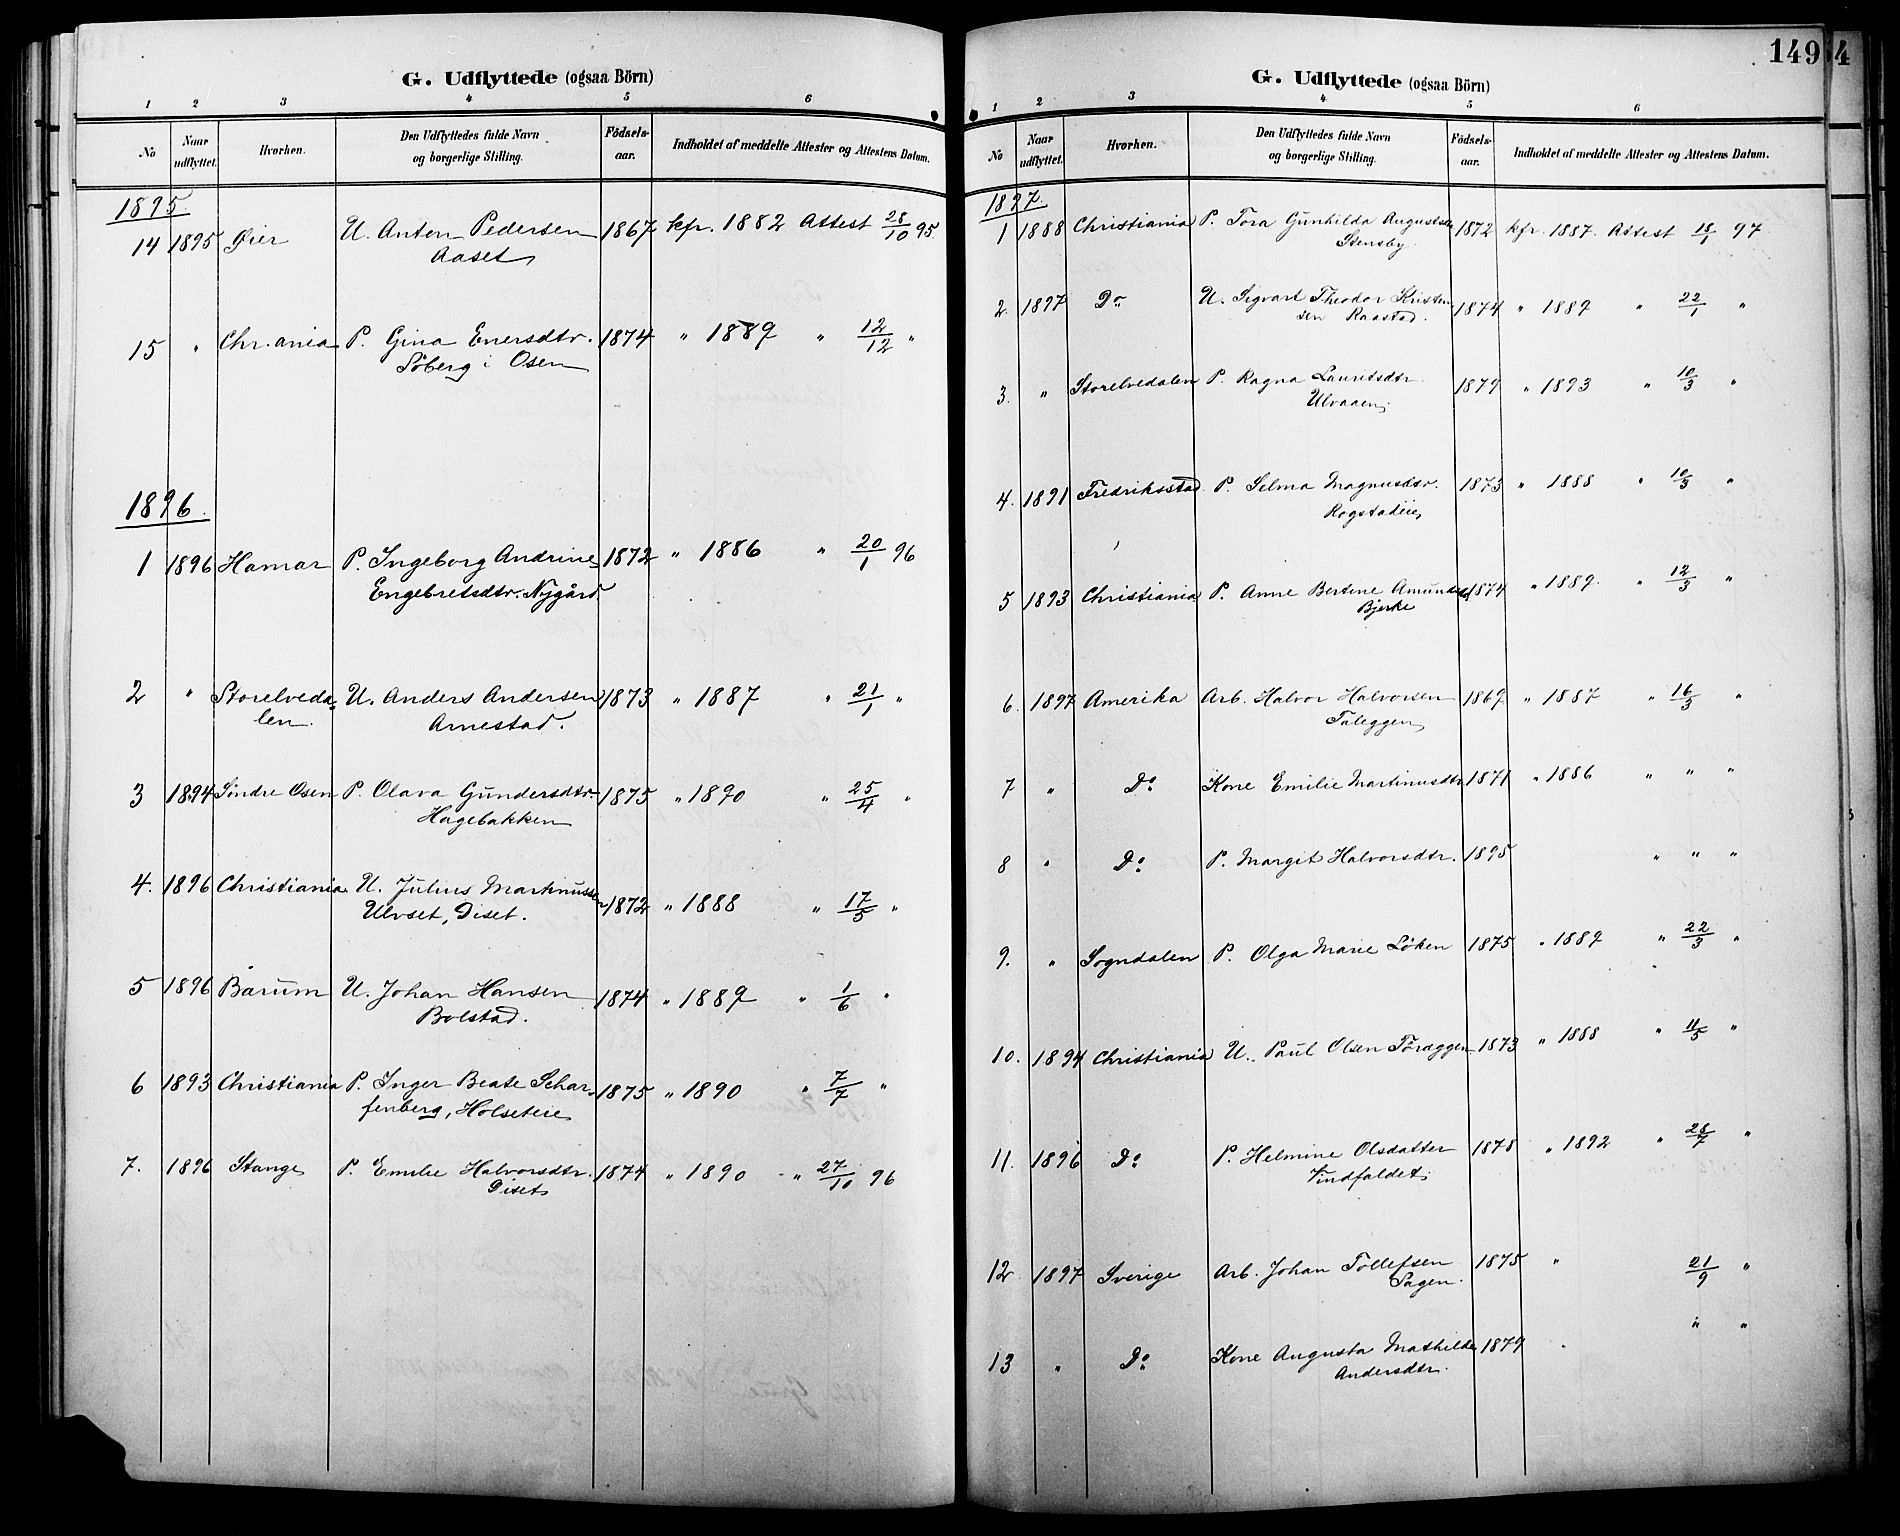 G. Udflyttede (ogsaa Börn)
1 2 3 4 5 6
No Naar udflyttet. Hvorhen. Den Udflyttedes fulde Navn og borgerlige Stilling. Födsels-aar. Indholdet af meddelte Attester og Attestens Datum.
1895.
14 1895 Øier U. Anton Pedersen 1867 kfr. 1882 Attest 28/10 95
Aaset
15 " Chr.ania P. Gina Enersdtr. 1874 " 1889 " 12/12 "
Söberg i Osen
1896.
1 1896 Hamar P. Ingeborg Andrine 1872 " 1886 " 20/1 96
Engebretsdtr. Nygård
2 " Storelveda- U. Anders Andersen 1873 " 1887 " 21/1 "
len. Arnestad.
3 1894 Søndre Osen P. Olava Gundersdtr. 1875 " 1890 " 25/4 "
Hagebakken
4. 1896 Christiania U. Julius Martinussen 1872 " 1888 " 17/5 "
Ulvset, Diset.
5 1896 Bärum U. Johan Hansen 1874 " 1889 " 1/6 "
Bolstad.
6 1893 Christiania P. Inger Beate Schar- 1875 " 1890 " 7/7 "
fenberg, Holseteie
7. 1896 Stange P. Emilie Halvorsdtr. 1874 " 1890 " 27/10 96
Diset
149
4
G. Udflyttede (ogsaa Börn)
1 2 3 4 5 6
No Naar udflyttet. Hvorhen. Den Udflyttedes fulde Navn og borgerlige Stilling. Födsels-aar. Indholdet af meddelte Attester og Attestens Datum.
1897.
1 1888 Christiania P. Tora Gunhilda Augustsen 1872 kfr. 1887. Attest 18/1 97.
Stensby.
2. 1897 Do U. Sigvart Theodor Kristen- 1874 " 1889 " 22/1 "
sen Raastad.
3. " Storelvedalen P. Ragna Lauritsdtr. 1879 " 1893 " 10/3 "
Ulvaaen
4. 1891 Fredriksstad P. Selma Magnusdtr. 1873 " 1888 " 10/3 "
Rogstadeie
5 1893 Christiania P. Anne Bertine Amundsd. 1874 " 1889. " 12/3 "
Bjerke
6. 1897 Amerika Arb. Halvor Halvorsen 1869 " 1887 " 16/3 "
Taleggen
7 " Do Kone Emilie Martinusdtr 1871 " 1886 " " "
8 " Do P. Margit Halvorsdtr. 1895 " " "
9. " Sogndalen P. Olga Marie Löken 1875 " 1889 " 22/3 "
10. 1894 Christiania U. Paul Olsen Töraggen 1873 " 1888 " 11/5 "
11. 1896 Do P. Helmine Olsdatter 1878 " 1892 " 28/7 "
Vindfaldet
12 1897 Sverige Arb. Johan Tollefsen 1875 " 21/9 "
Sagen.
13 " Do Kone Augusta Mathilde 1879 " " "
Andersdtr.